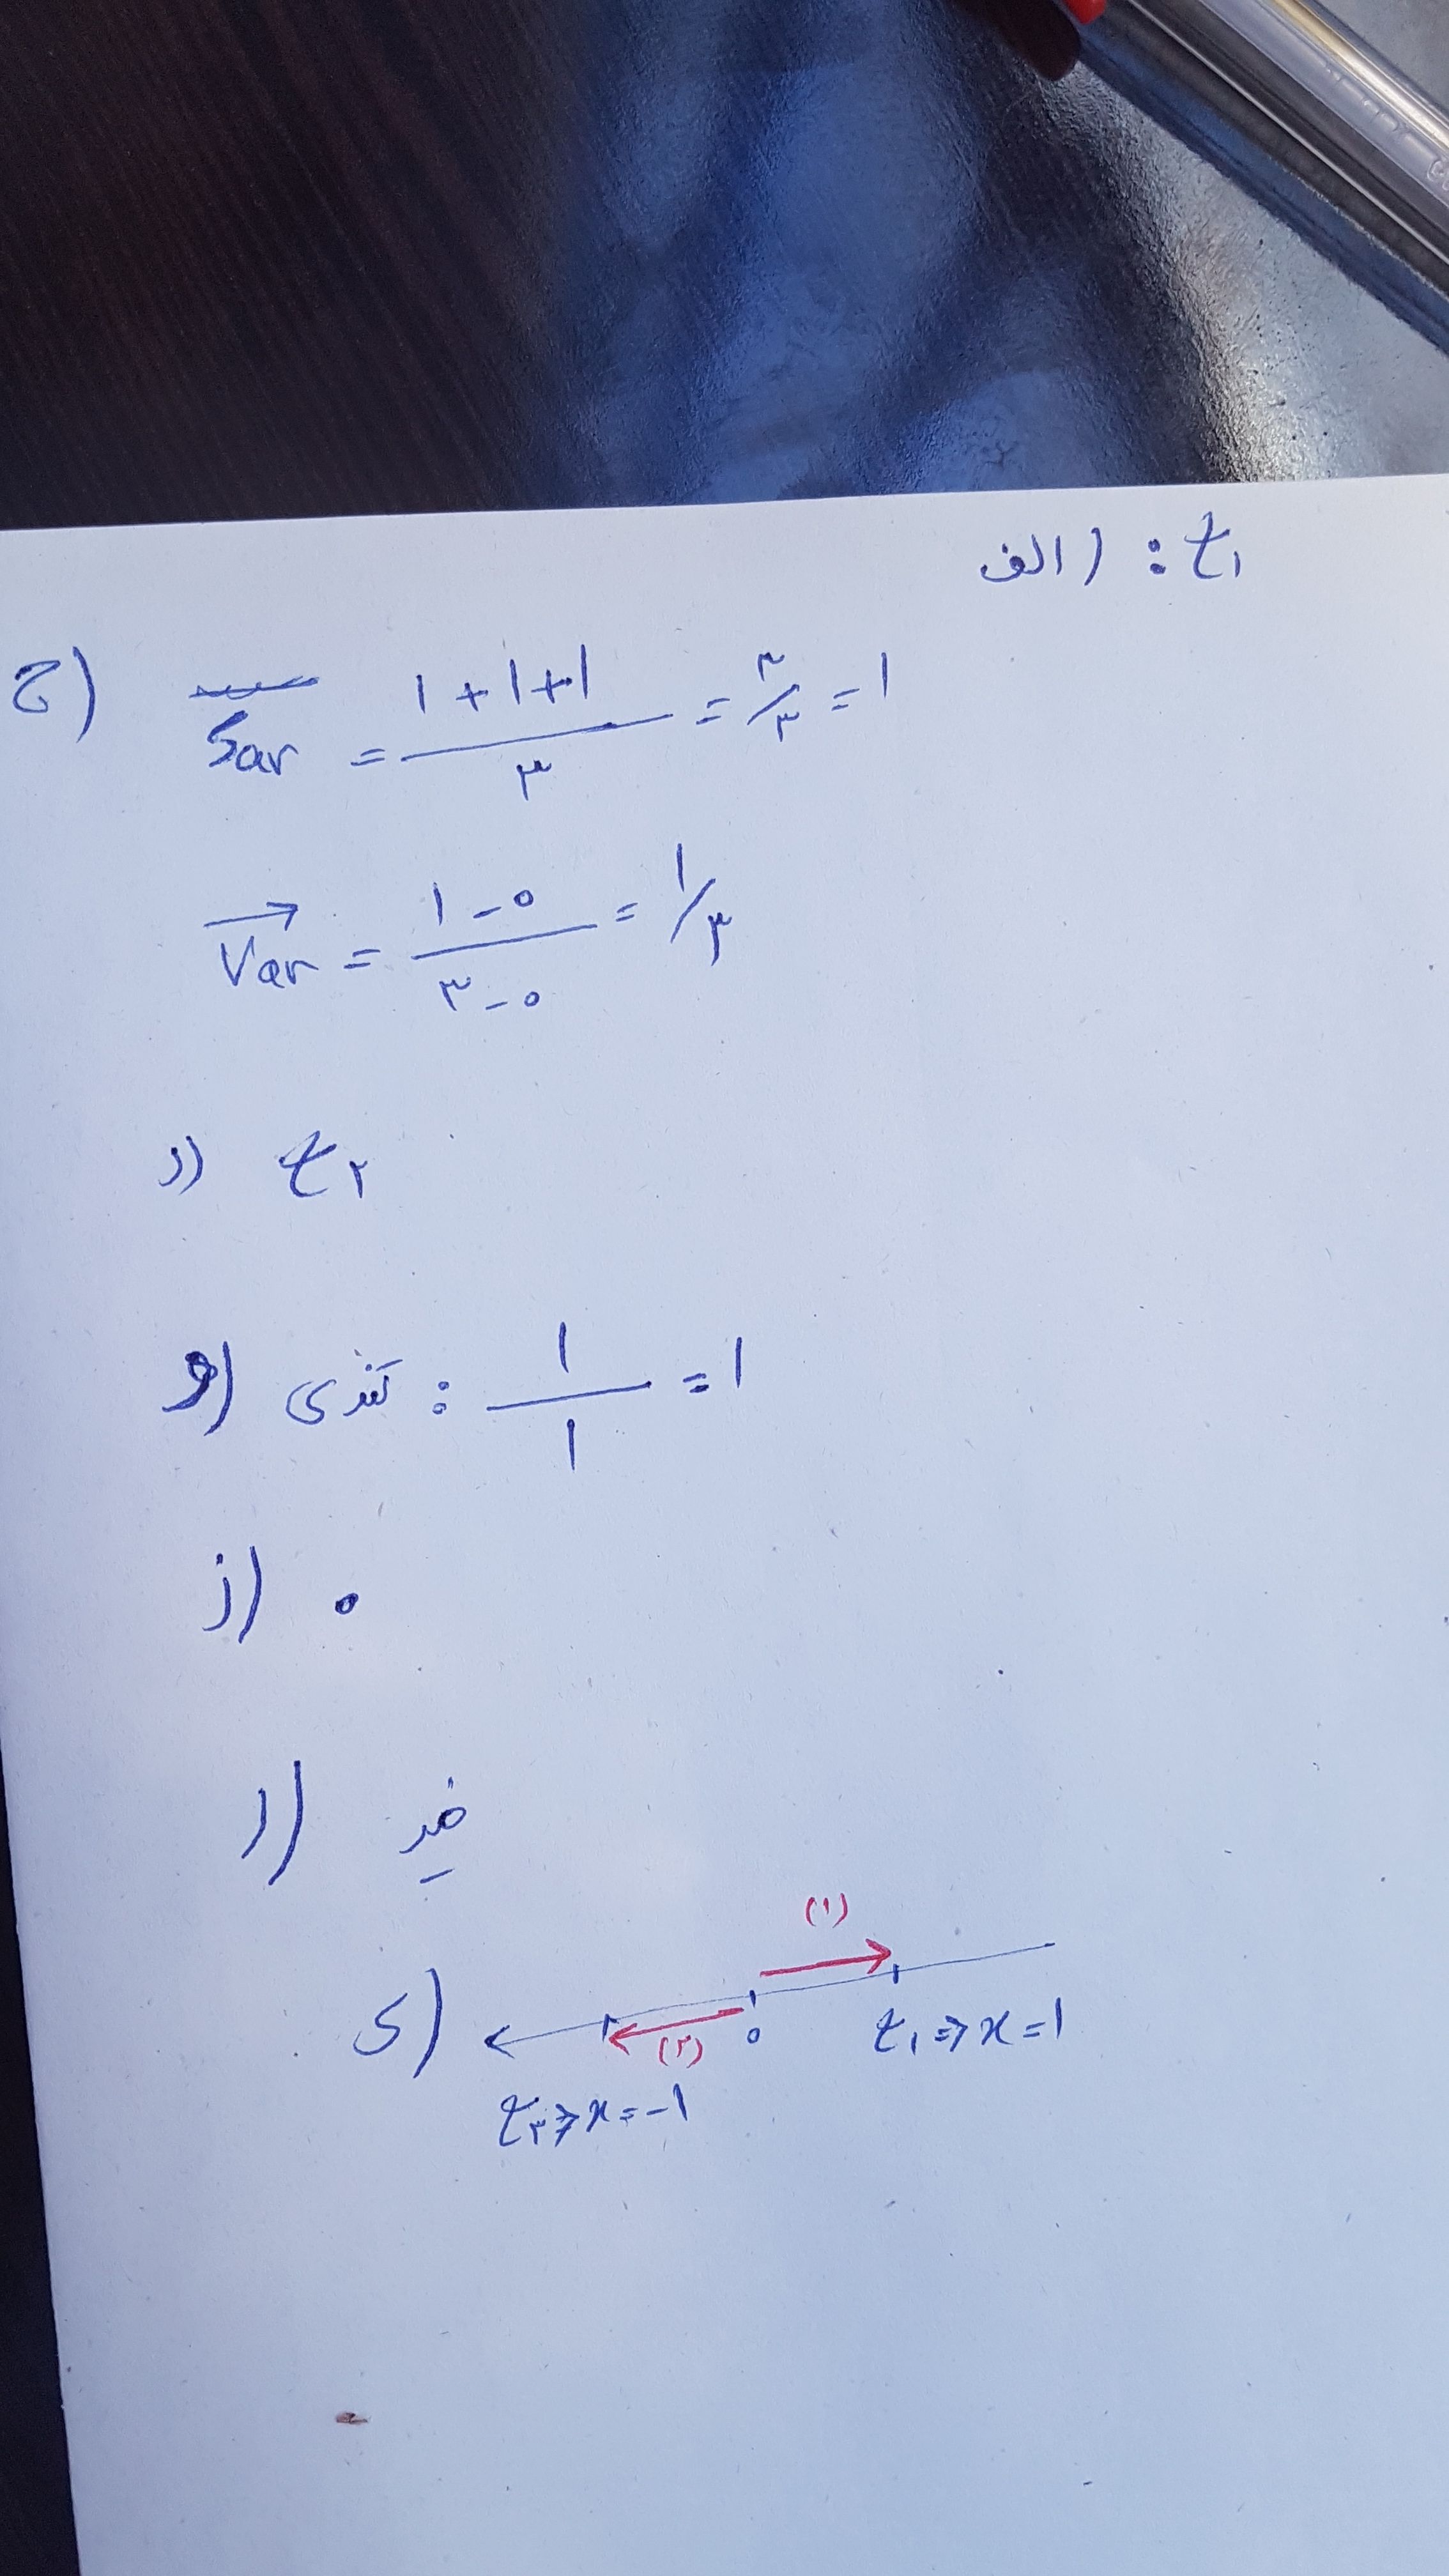 الف) : t₁
ج) Sav = ۱+۱+۱/۳ = ۳/۳ = ۱
Vav = ۱-۰/۳-۰ = ۱/۳
د) t۲
و) تندی : ۱/۱ = ۱
ز) ۰
خیر
(۱)
ی) (۲) ۰ t₁ => x=۱
=> x=-۱